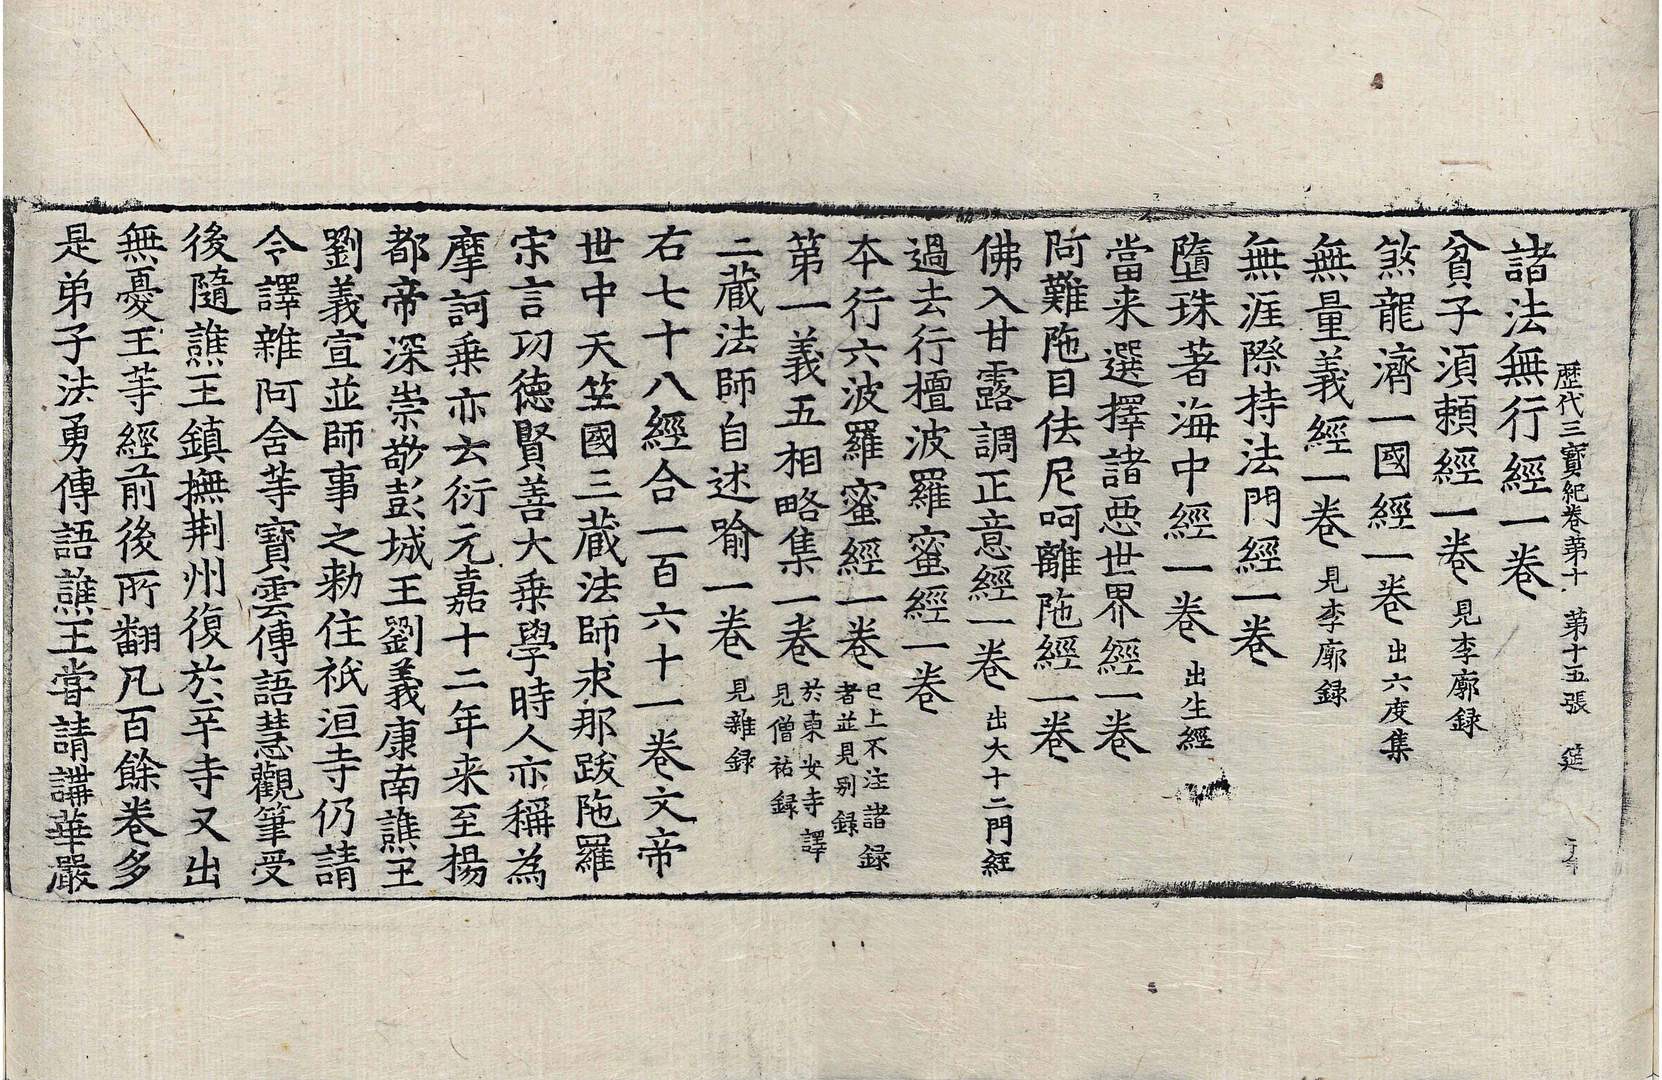 歷代三寶紀卷第十　第十五張　筵
諸法無行經一卷
貧子湏賴經一卷　見李廓録
煞龍濟一國經一卷　出六度集
無量義經一卷　見李廓録
無涯際持法門經一卷
墮珠著海中經一卷　出生經
當来選擇諸惡世界經一卷
阿難陁目佉尼呵離陁經一卷
佛入甘露調正意經一卷　出大十二門經
過去行檀波羅蜜經一卷
本行六波羅蜜經一卷　已上不注諸録者並見别録
第一義五相略集一卷　於東安寺譯見僧祐録
三藏法師自述喻一卷　見雜録
右七十八經合一百六十一卷文帝
世中天竺國三藏法師求那跋陁羅
宋言功德賢善大乗學時人亦稱為
摩訶乗亦云衍元嘉十二年来至楊
都帝深崇敬彭城王劉義康南譙王
劉義宣並師事之勅住祇洹寺仍請
令譯雜阿含等寶雲傳語慧觀筆受
後隨譙王鎮撫荆州復於辛寺又出
無憂王等經前後所翻凡百餘卷多
是弟子法勇傳語譙王甞請講華嚴